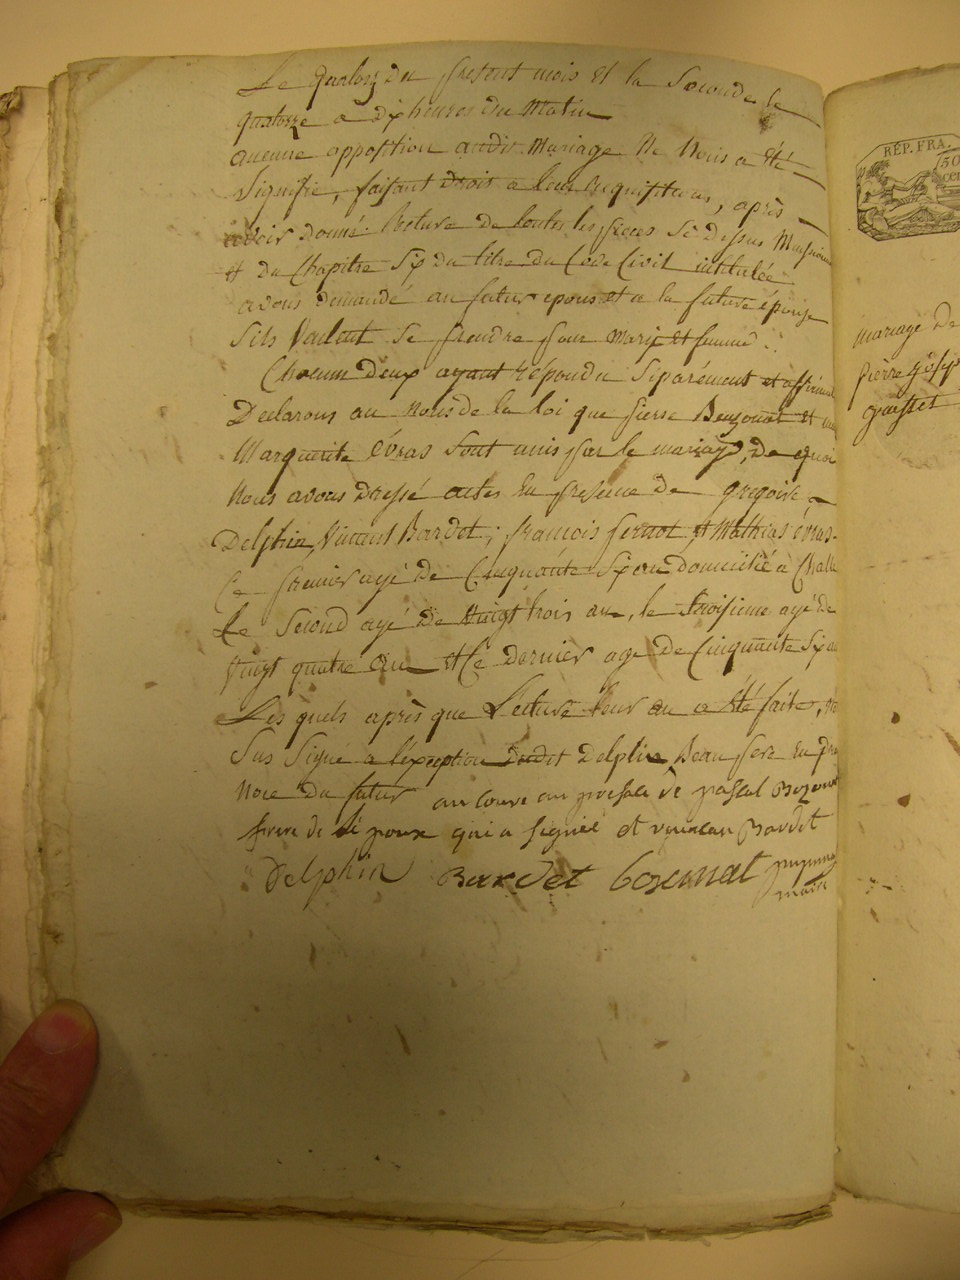 Le quatorz du present mois et la Seconde le
quatorze a dix heures du Matin
aucune apposition audit Mariage Ne Nous a été
Signifié, faisant droit a leur requisition, après
avoir donné Lecture de toutes les pieces Ci Dessus
et du Chapitre Six du titre du Code Civil intitulée
avons demandé au futur epoux et a la future épouse
Sils Veulent Se prendre pour Mary et femme
Chacun deux ayant répondu Séparément et affirmat
Declarons au Nom de la loi que pierre Bouzonat et
Marguerite Evras Sont unis par le mariage, de quoi
Nous avons Dressé actes En presence de gregoire
Delphin, Vincent Bardet, francois et Mathias évras
Le premier agé de Cinquante Six ans domicilié à
Le Second agé de Vingt trois ans, le troisieme agé de
Vingt quatre ans et le dernier agé de Cinquante Six
Les quels après que Lecture leur en a été faite,
Sus Signé a l'éxception dudit Delphin Beau pere
du futur au in presale de pascal Bozonat
frere de lé poux qui a signié et vincean Bardet
Delphin Bardet bozonat
maire
RÉP. FRA.
50
mariage De
pierre Josep